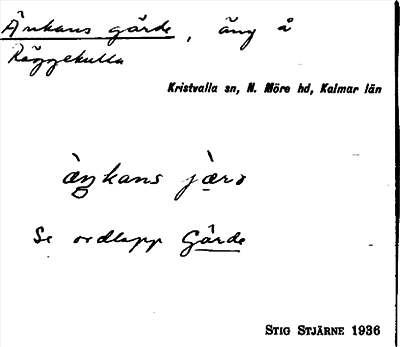 Änkans gärde, äng å
Räggekulla
Kristvalla sn, N. Möre hd, Kalmar län
Se ordlapp Gärde
STIG STJÄRNE 1936